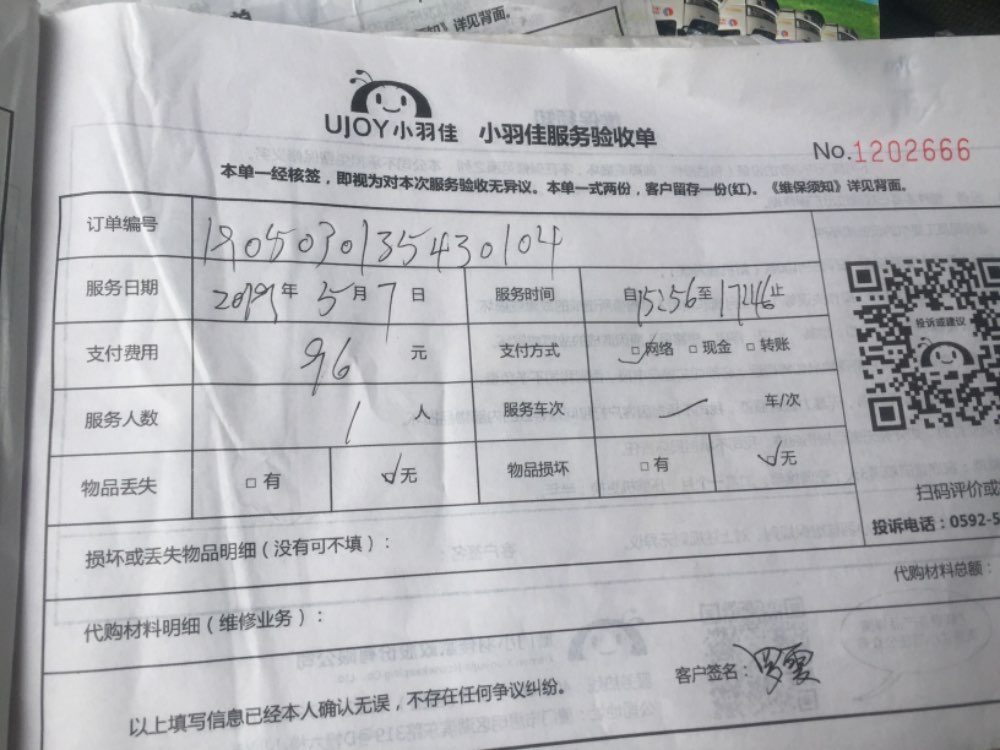 知》详见背面。
UJOY小羽佳 小羽佳服务验收单
No.1202666
本单一经核签，即视为对本次服务验收无异议。本单一式两份，客户留存一份(红)。《维保须知》详见背面。
订单编号 1905030135430104
服务日期 2019年 5月 7日 服务时间 自15:56至17:46止
支付费用 96 元 支付方式 网络 现金 转账
投诉或建议
服务人数 1 人 服务车次 — 车/次
物品丢失 有 无 物品损坏 有 无
扫码评价或
投诉电话：0592-5
损坏或丢失物品明细（没有可不填）：
代购材料总额：
代购材料明细（维修业务）：
客户签名：罗雯
以上填写信息已经本人确认无误，不存在任何争议纠纷。